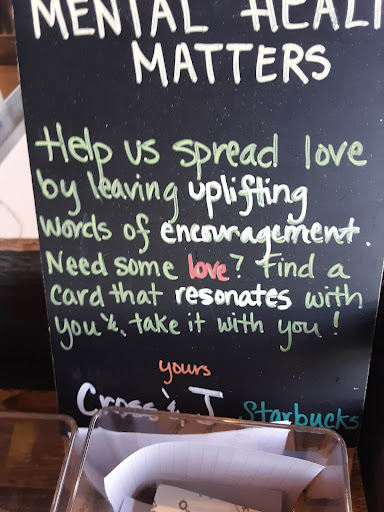 MENTAL HEAL
MATTERS
Help us spread love
by leaving uplifting
words of encouragement.
Need some love? Find a
card that resonates with
you &, take it with you!
yours
Cross & J Starbucks